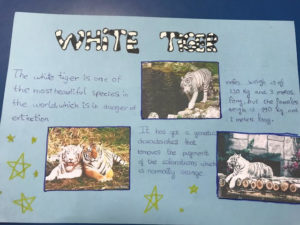 WHITE TIGER
The white tiger is one of
the most beautiful species in
the world which is in danger of
extinction
males weigh of
230 kg and 3 metres
long, but the females
weigh
kg and
metres long.
It has got a genetic
that
removes the pigment
of the colorations which
is normally orange.